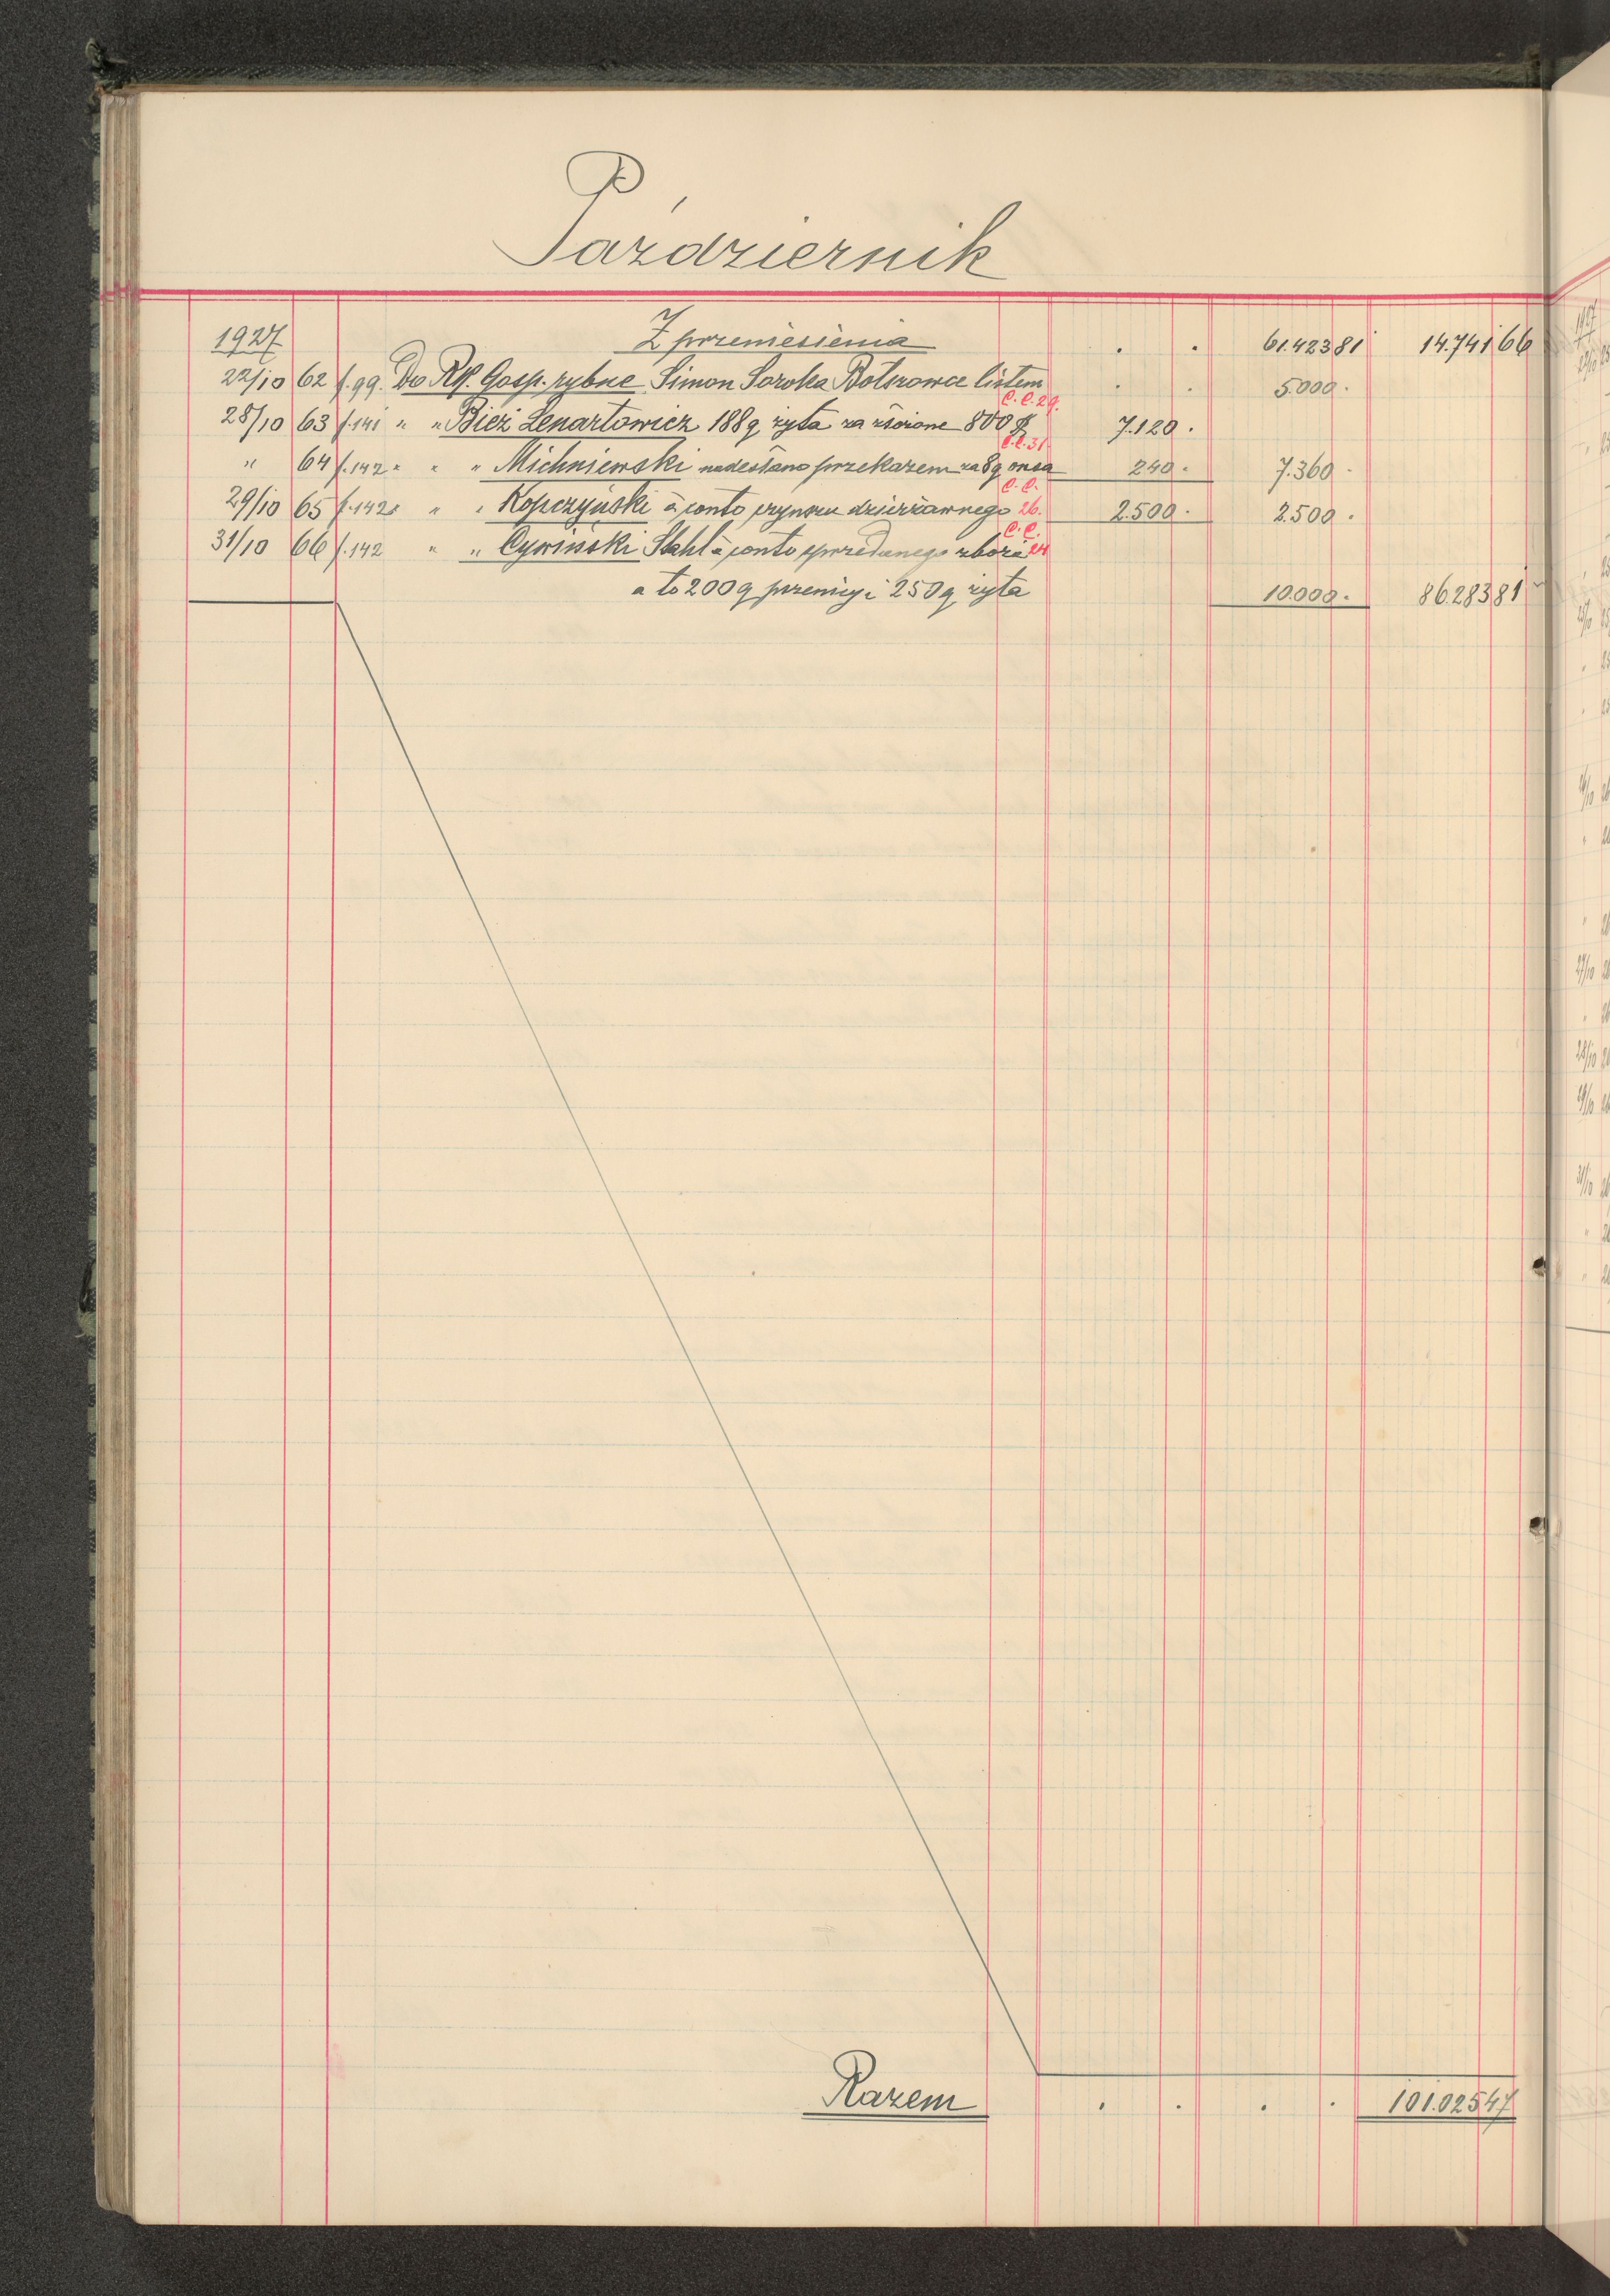 Październik
1927 Z przeniesienia . . 61.423 81 14.741 66
22/10 62 f. 99. Do Rk. Gosp. rybne Simon Soroka Bolszowce listem . . 5.000 .
C. C. 29.
28/10 63 f. 141 " " Bież Lenartowicz 188 q żyta za złożone 800 $ 7.120 .
C. C. 31
" 64 f. 142 " " " Michniewski nadesłano przekazem za 8 q owsa 240 . 7.360 .
C. C.
29/10 65 f. 142 " " Kopczyński à conto czynszu dzierżawnego 26. 2.500 . 2.500 .
C. C.
31/10 66 f. 142 " " Cywiński Stahl à conto sprzedanego zboża 24
a to 200 q pszenicy i 250 q żyta 10.000 . 86.283 81
Razem . . . . 101.025 47